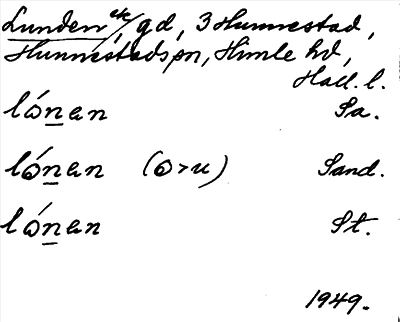 Lunden etc/, gd, 3 Hunnestad,
Hunnestads sn, Himle hd,
Hall. l.
lónan Sa.
lónan (o>u) Sand.
lónan St.
1949.